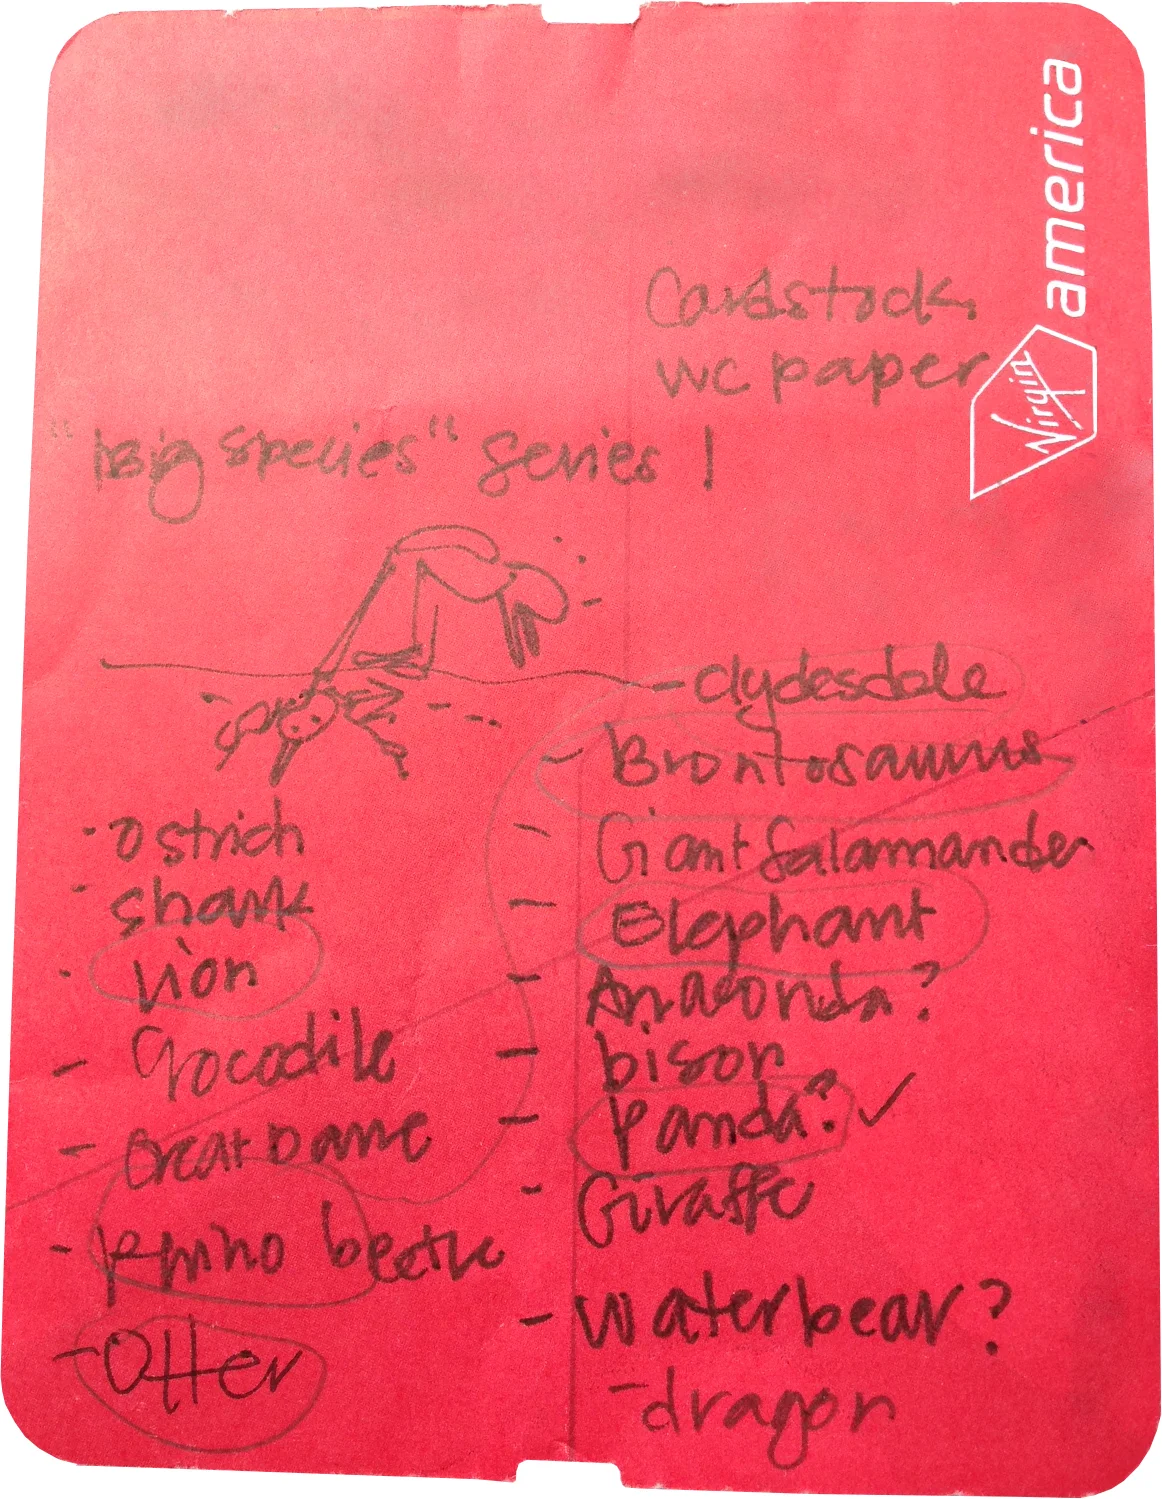 Virgin america
Cardstock
wc paper
"big species" series 1
· Ostrich
· shark
· Lion
- Crocodile
- Great Dane
- Rhino beetle
- Otter
- Clydesdale
- Brontosaurus
- Giant Salamander
- Elephant
- Anaconda?
- bison
- Panda? ✓
- Giraffe
- Waterbear?
- dragon